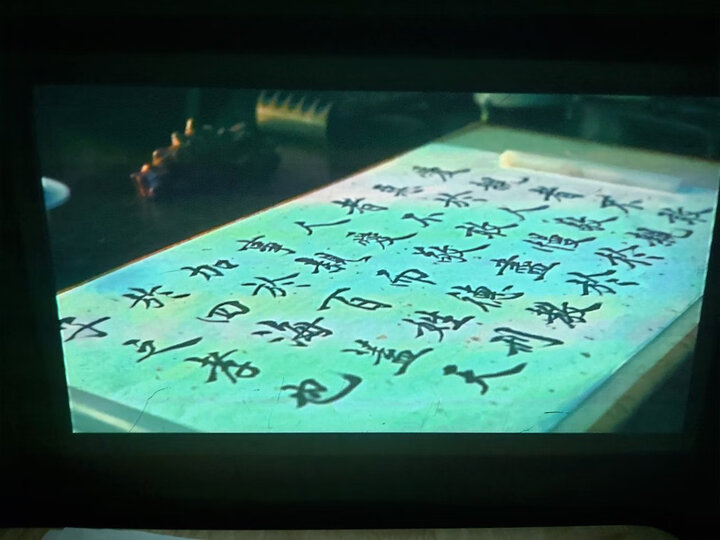 愛親者不敢
惡於人敬親
者不敢慢於
人愛敬盡於
事親而德教
加於百姓刑
於四海蓋天
子之孝也